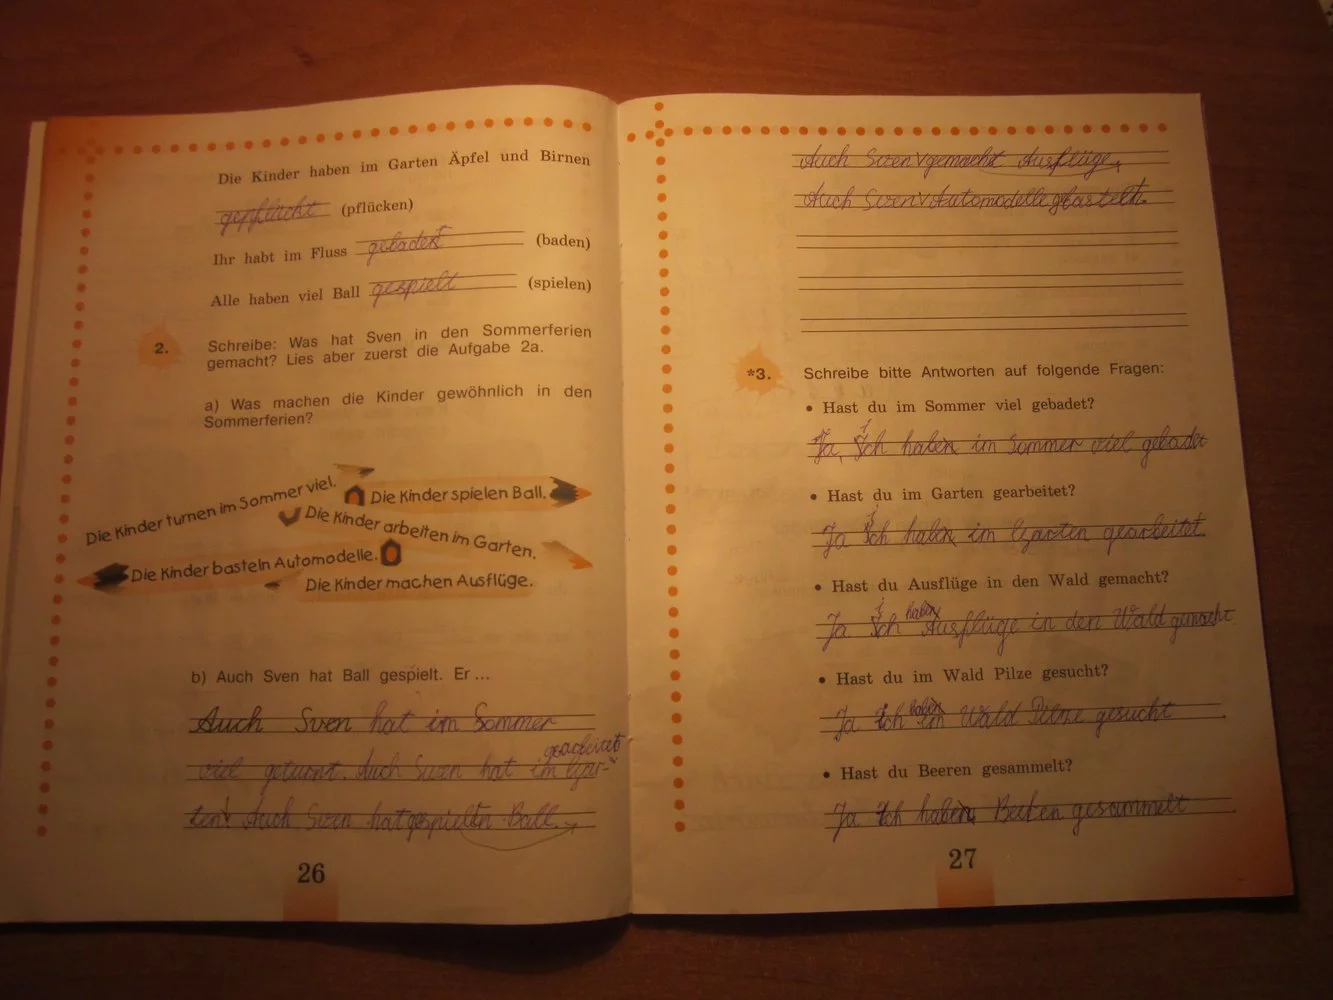 Die Kinder haben im Garten Äpfel und Birnen
gepflückt (pflücken)
Ihr habt im Fluss gebadet (baden)
Alle haben viel Ball gespielt (spielen)
2. Schreibe: Was hat Sven in den Sommerferien
gemacht? Lies aber zuerst die Aufgabe 2a.
a) Was machen die Kinder gewöhnlich in den
Sommerferien?
Die Kinder turnen im Sommer viel.
Die Kinder spielen Ball.
Die Kinder arbeiten im Garten.
Die Kinder basteln Automodelle.
Die Kinder machen Ausflüge.
b) Auch Sven hat Ball gespielt. Er ...
Auch Sven hat im Sommer
gearbeitet
viel geturnt. Auch Sven hat im Gar-
ten Auch Sven hat gespielt Ball.
26
Auch Sven gemacht Ausflüge.
Auch Sven Automodelle
*3. Schreibe bitte Antworten auf folgende Fragen:
• Hast du im Sommer viel gebadet?
Ja, Ich haben im Sommer viel gebadet
• Hast du im Garten gearbeitet?
Ja Ich haben im Garten gearbeitet
• Hast du Ausflüge in den Wald gemacht?
haben
Ja Ich Ausflüge in den Wald gemacht
• Hast du im Wald Pilze gesucht?
haben
Ja Ich im Wald Pilze gesucht
• Hast du Beeren gesammelt?
Ja Ich haben gesammelt
27